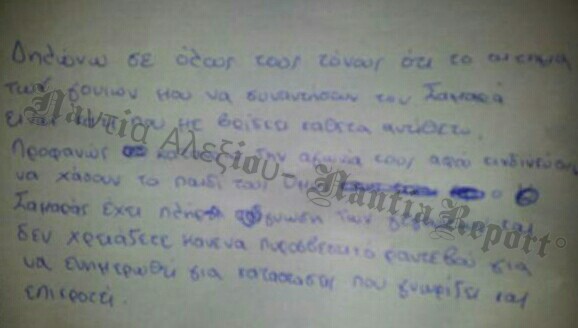 Δηλώνω σε όλους τους τόνους ότι το αίτημα
των γονιών μου να συναντήσουν τον Σαμαρά
είναι κάτι που με βρίσκει κάθετα αντίθετο.
Προφανώς την αγωνία τους αφού κινδινεύουν
να χάσουν το παιδί τους ο
Σαμαράς έχει πλήρη γνωση των και
δεν χρειάζετε κανενα πυροσβεστικό ραντεβού για
να ενημερωθεί για καταστασεις που γνωρίζει και
επικροτεί.
Νάντια Αλεξίου - NantiaReport°